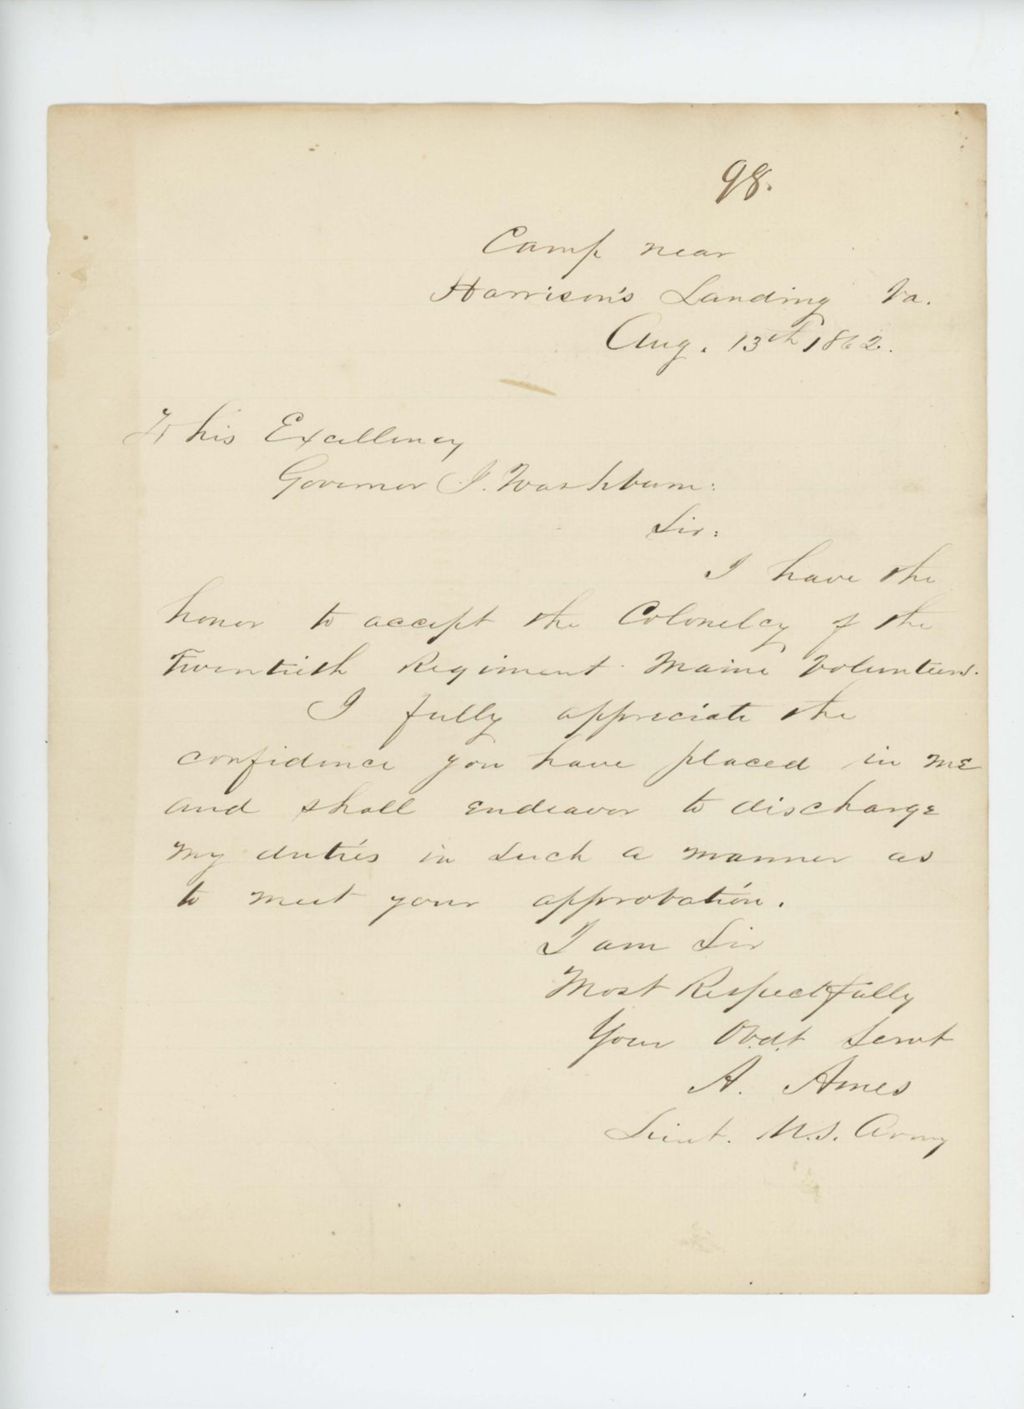 98.
Camp near
Harrison's Landing Va.
Aug. 13th 1862.
To his Excellency
Governor I. Washburn:
Sir:
I have the
honor to accept the Colonelcy of the
Twentieth Regiment Maine Volunteers.
I fully appreciate the
confidence you have placed in me
and shall endeavor to discharge
my duties in such a manner as
to meet your approbation.
I am Sir
Most Respectfully
Your Obdt Servt
A. Ames
Lieut. U.S. Army